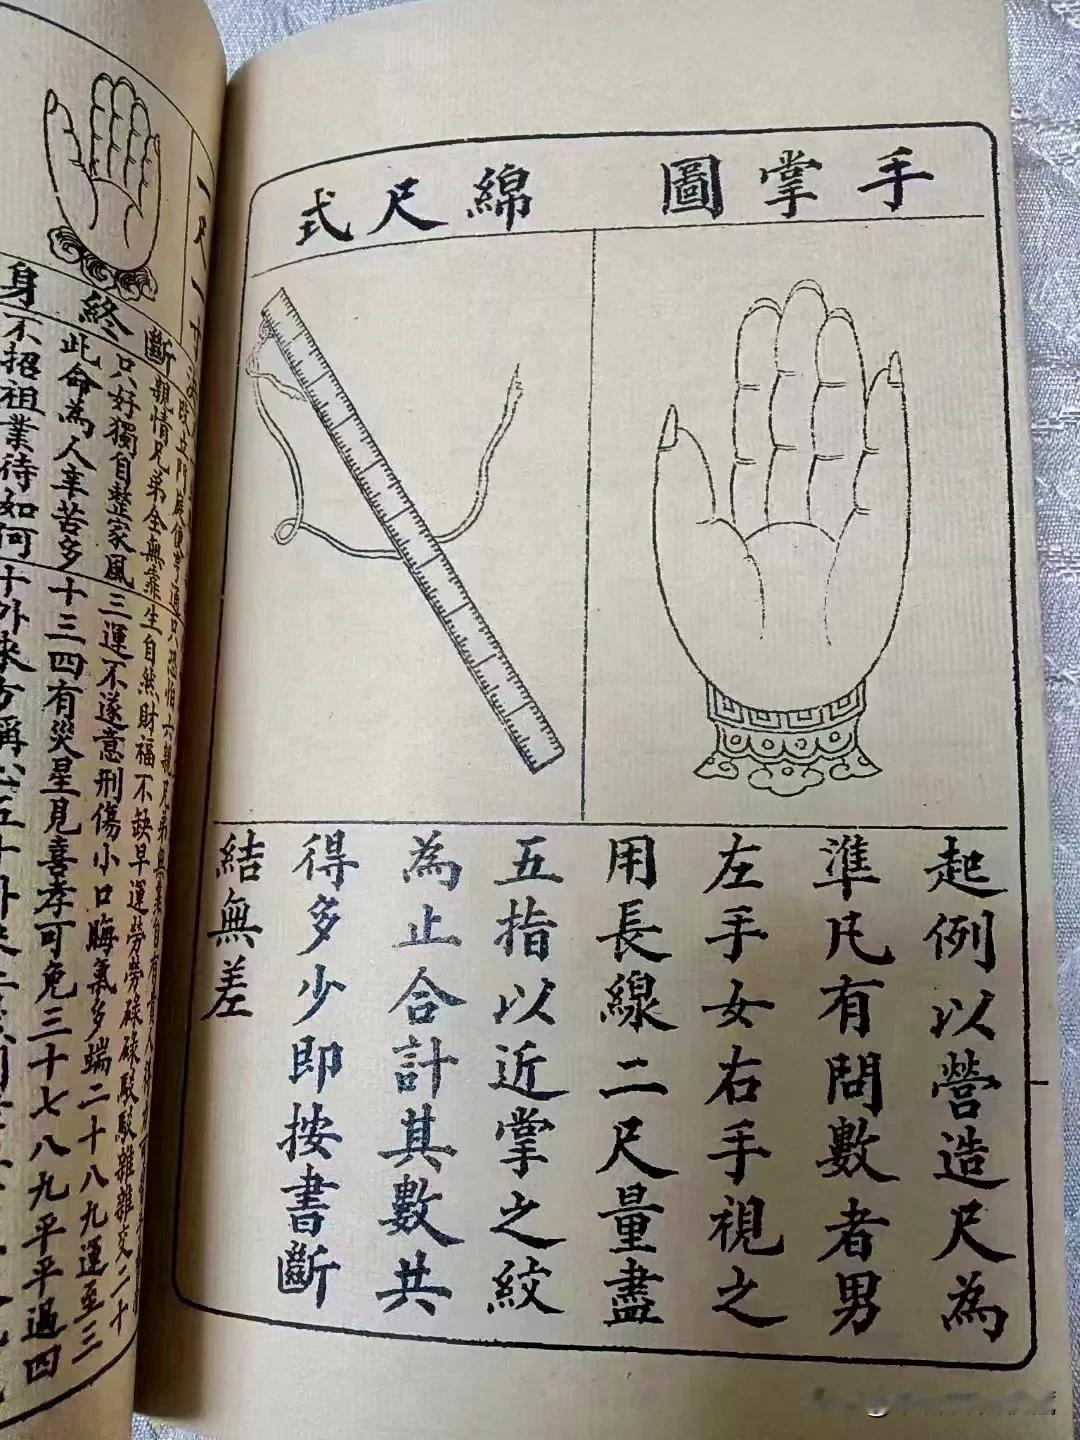 手掌圖
綿尺式
起例以營造尺為
準凡有問數者男
左手女右手視之
用長線二尺量盡
五指以近掌之紋
為止合計其數共
得多少即按書斷
結無差
一尺一寸
終身
斷
親情兄弟全無靠生自然財福不缺早運勞勞碌碌駁駁雜雜交二十
只好獨自整家風三運不遂意刑傷小口晦氣多端二十八九運至三
此命為人辛苦多十三四有災星見喜孝可免三十七八九平平過四
不招祖業待如何十外來方稱心五十外